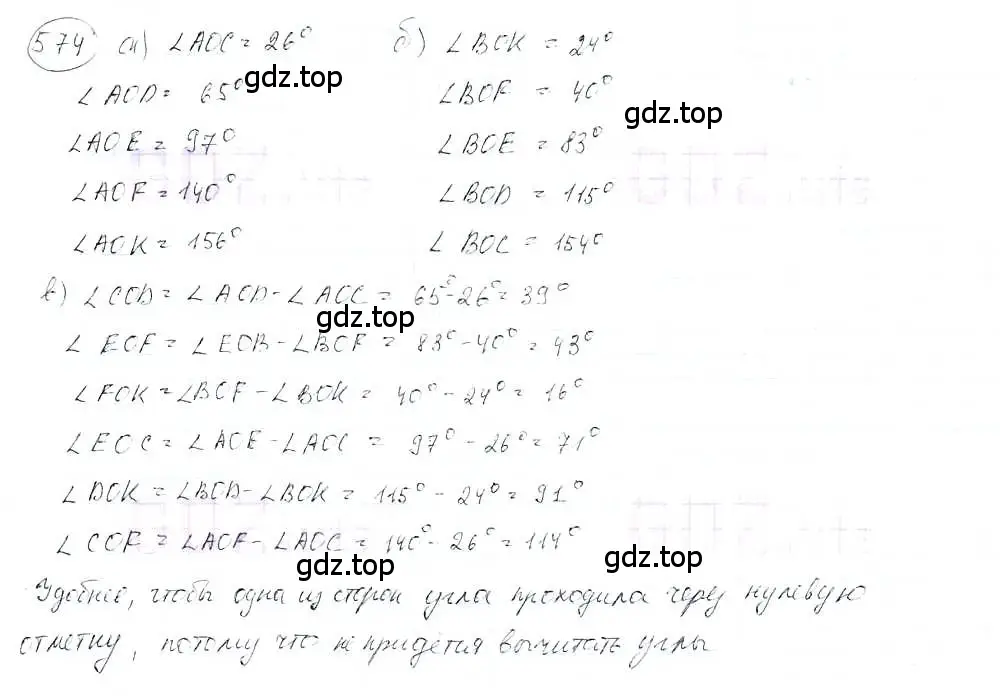 574 а) ∠AOC = 26° б) ∠BOK = 24°
gdz.top
∠AOD = 65° ∠BOF = 40°
gdz.top
∠AOE = 97° ∠BOE = 83°
∠AOF = 140° ∠BOD = 115°
∠AOK = 156° ∠BOC = 154°
в) ∠COD = ∠AOD - ∠AOC = 65° - 26° = 39°
gdz.top
∠EOF = ∠EOB - ∠BOF = 83° - 40° = 43°
∠FOK = ∠BOF - ∠BOK = 40° - 24° = 16°
∠EOC = ∠AOE - ∠AOC = 97° - 26° = 71°
∠DOK = ∠BOD - ∠BOK = 115° - 24° = 91°
∠COF = ∠AOF - ∠AOC = 140° - 26° = 114°
gdz.top
gdz.top
Удобнее, чтобы одна из сторон угла проходила через нулевую
отметку, потому что не придётся вычитать углы